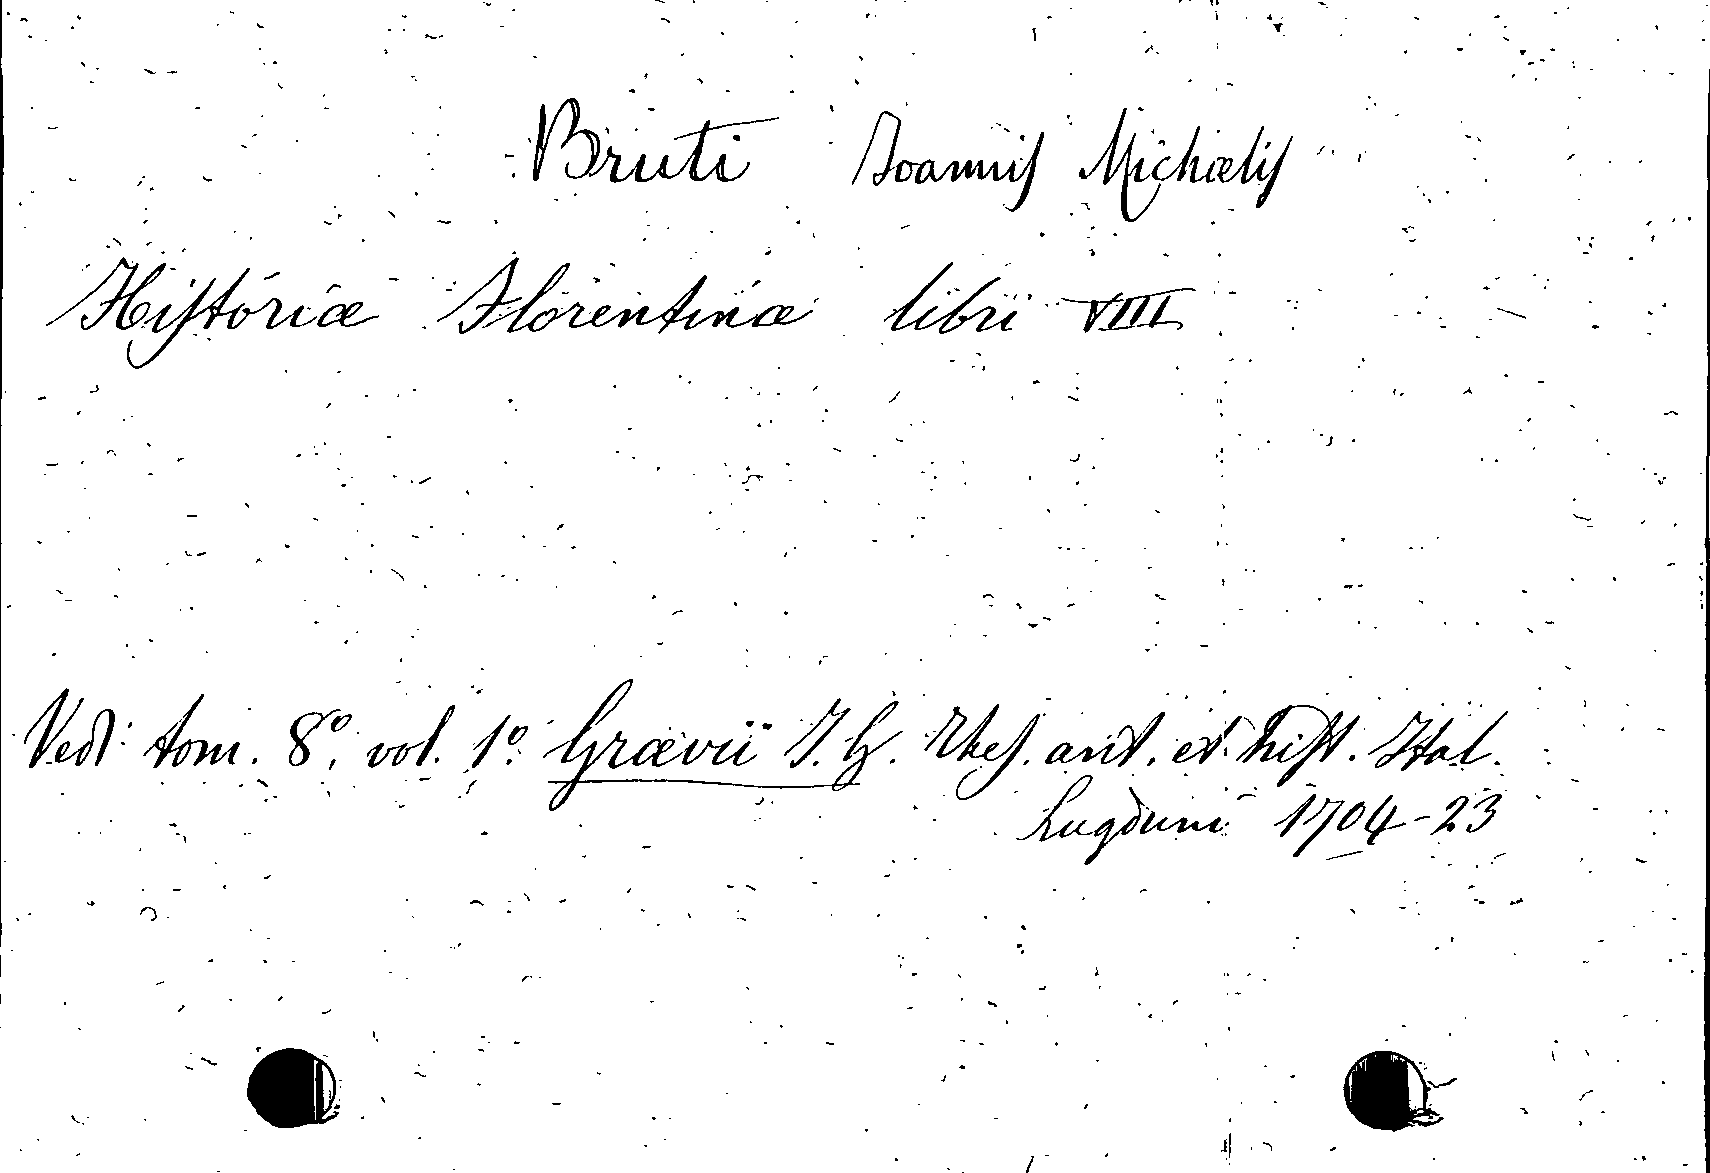 Bruti Joannis Michælis
Historiæ Florentinæ libri VIII
Vedi tom. 8º. vol. 1º. Grævii J. G. Thes. ant. et hist. Ital.
Lugduni 1704-23